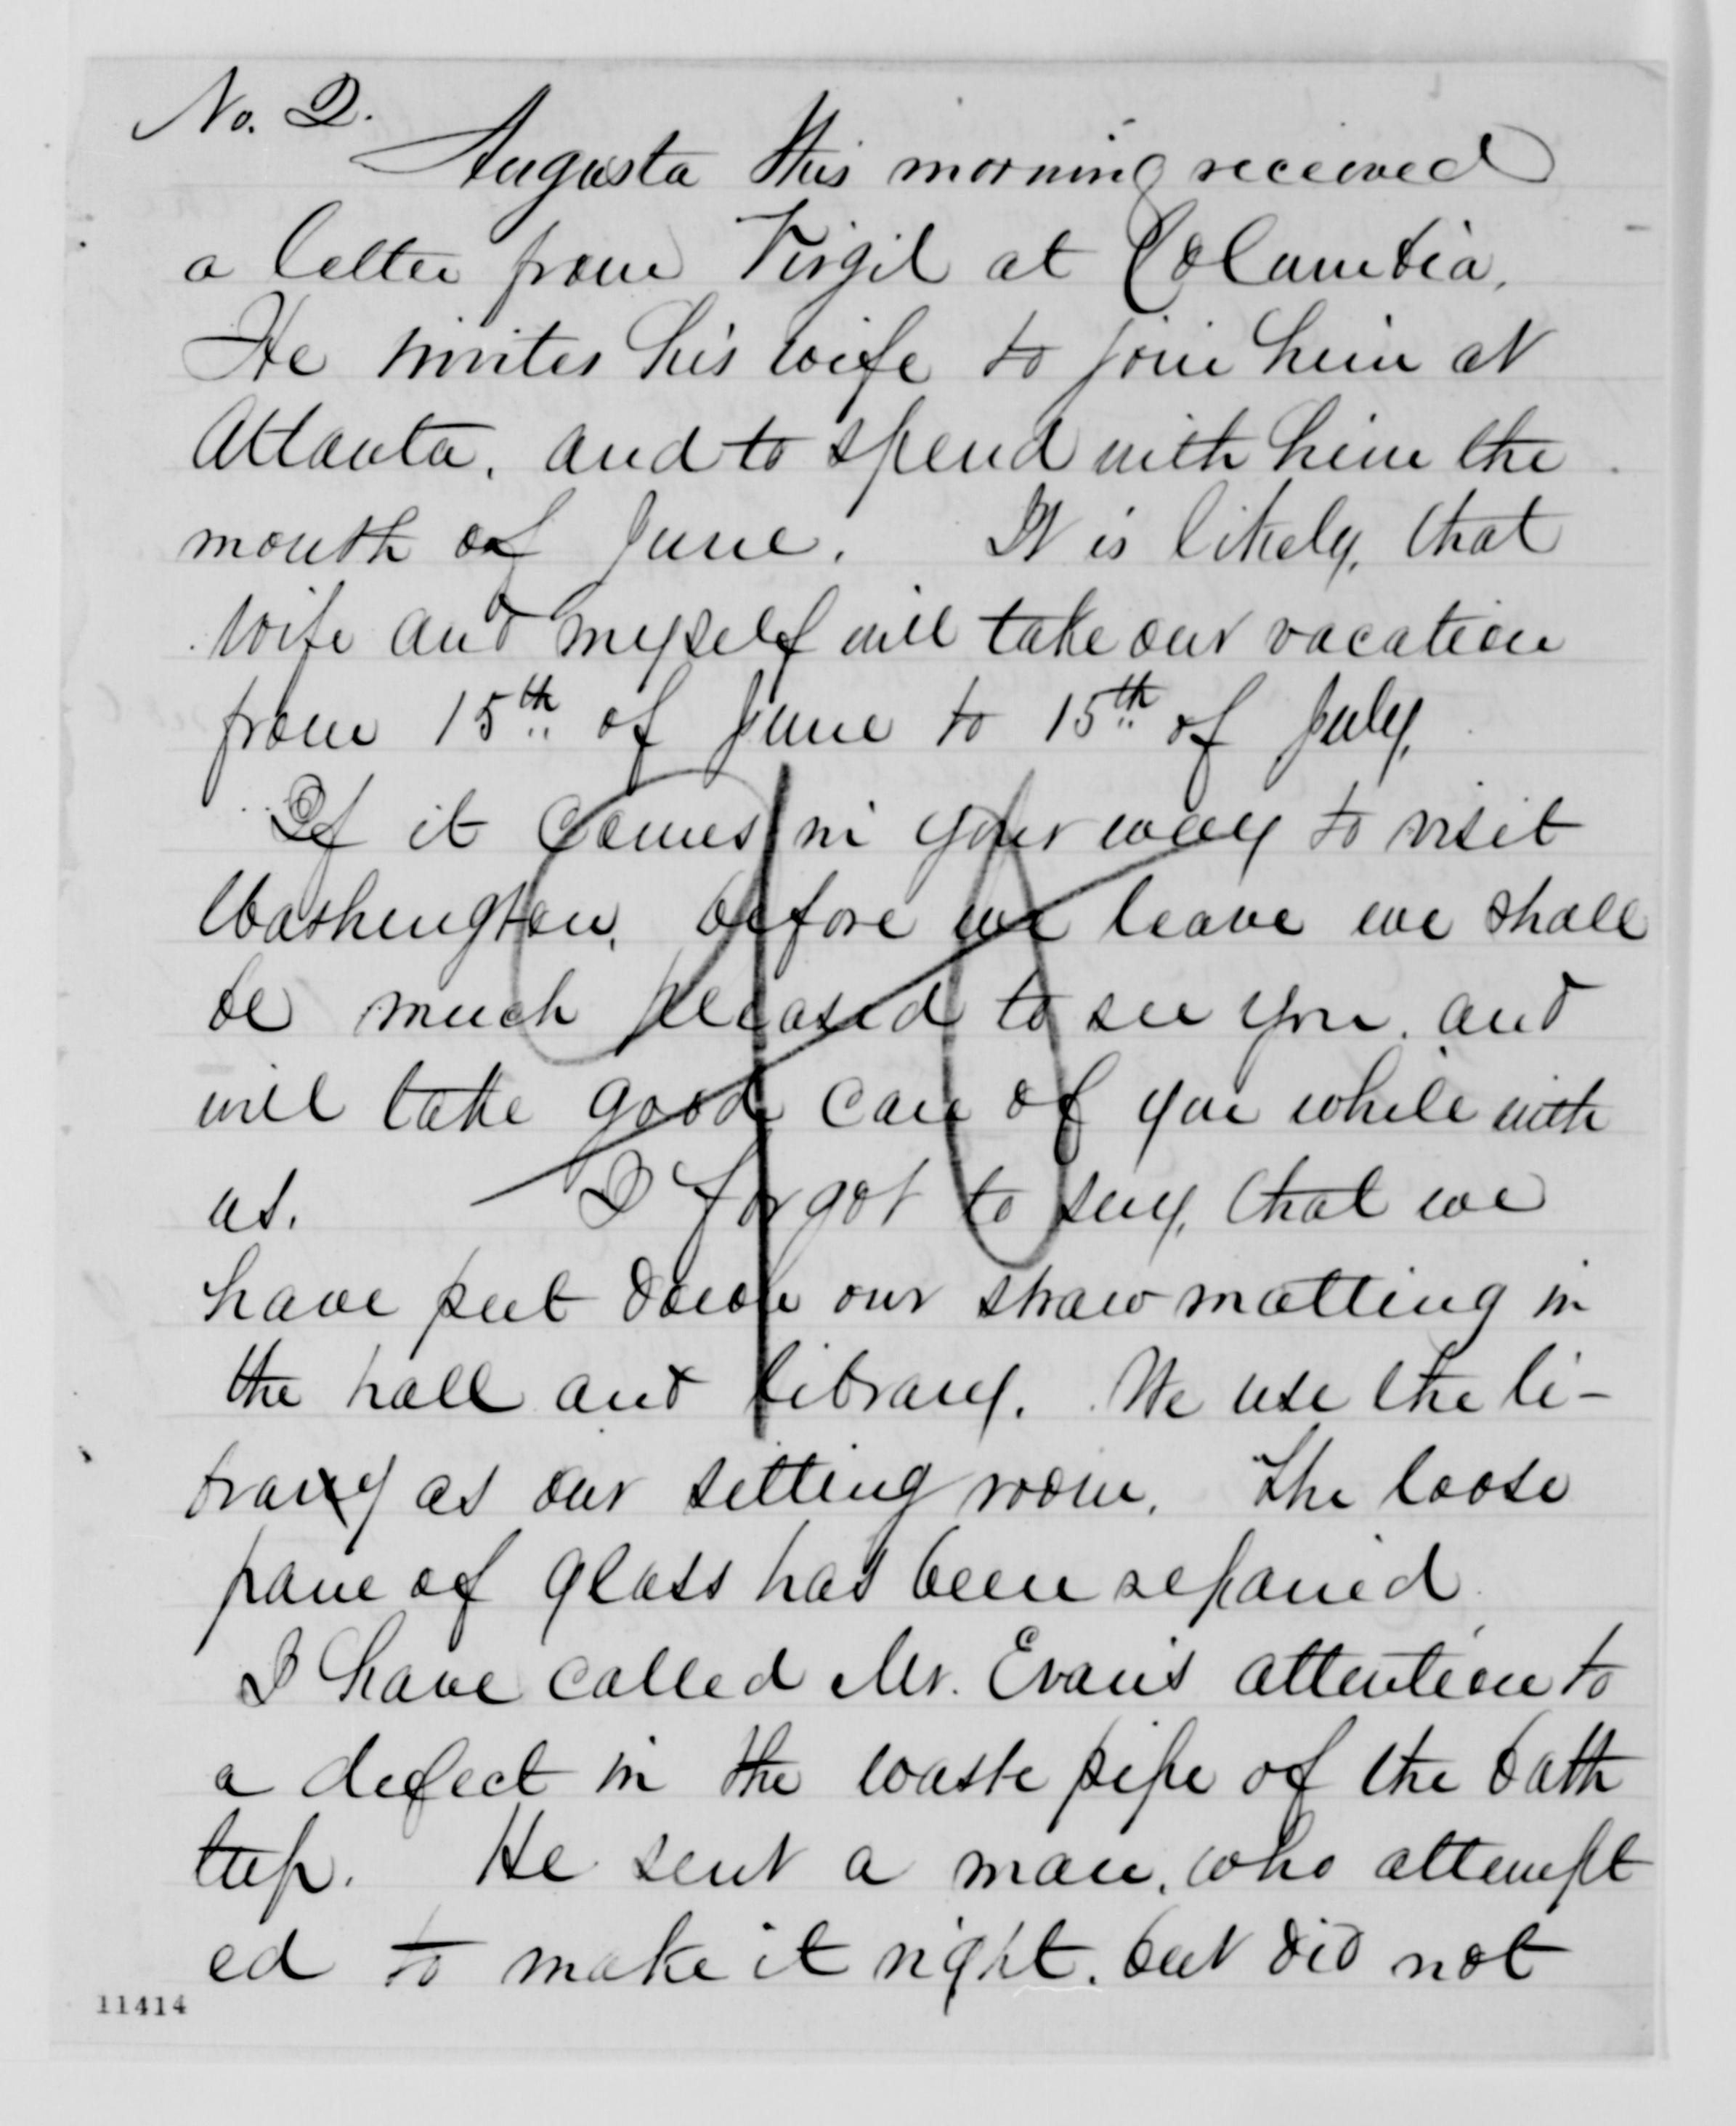 No. 2.
Augusta this morning received
a letter from Virgil at Columbia.
He invites his wife to join him at
Atlanta, and to spend with him the
month of June. It is likely, that
wife and myself will take our vacation
from 15th of June to 15th of July.
If it comes in your way to visit
Washington, before we leave we shall
be much pleased to see you, and
will take good care of you while with
us. I forgot to say, that we
have put down our straw matting in
the hall and library. We use the li-
brary as our sitting room. The loose
pane of glass has been repaired.
I have called Mr. Evans attention to
a defect in the waste pipe of the bath
tup. He sent a man, who attempt
ed to make it right, but did not
11414